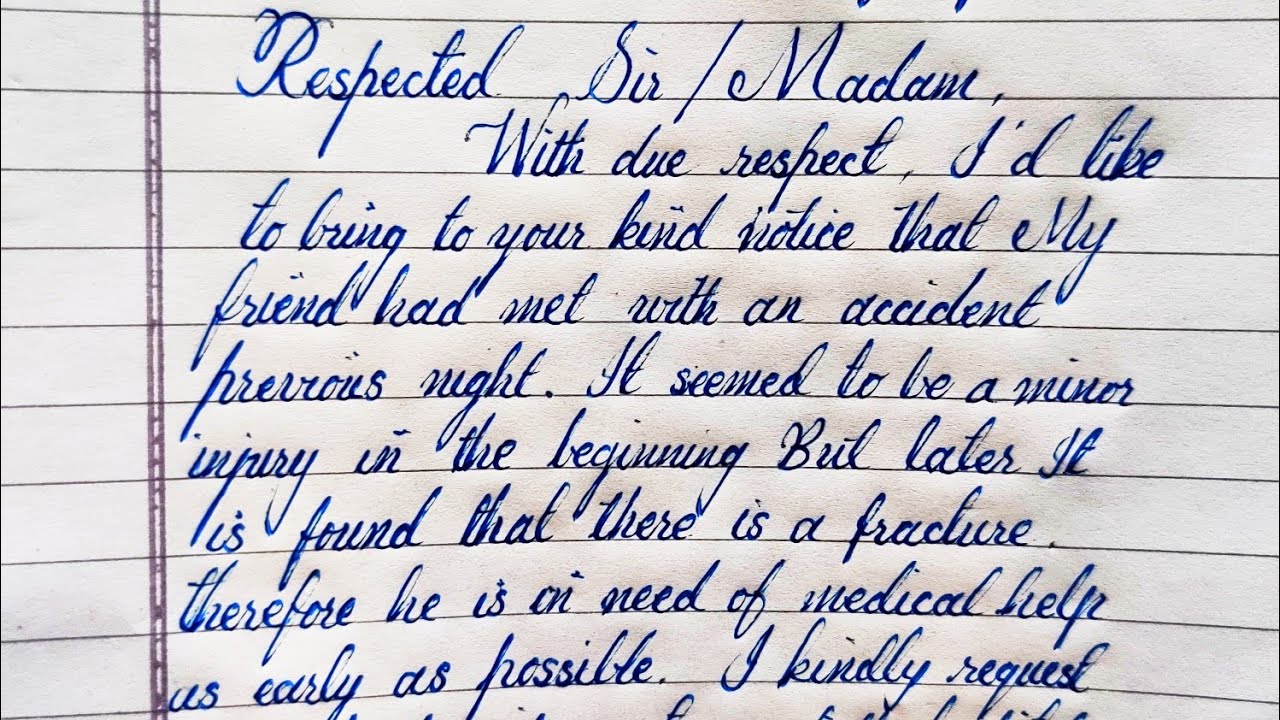 Respected Sir/Madam,
With due respect, I'd like
to bring to your kind notice that My
friend had met with an accident
previous night. It seemed to be a minor
injury in the beginning But later It
is found that there is a fracture.
therefore he is in need of medical help
as early as possible. I kindly request